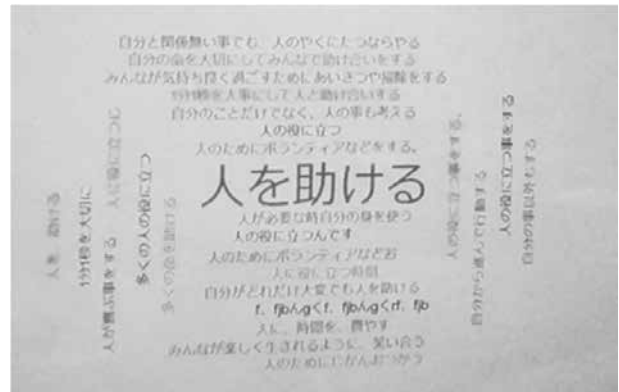 自分と関係無い事でも、人のやくにたつならやる
自分の命を大切にしてみんなで助け合いをする
みんなが気持ち良く過ごすためにあいさつや掃除をする
1分1秒を大事にして人と助け合いする
自分のことだけでなく、人の事も考える
人の役に立つ
人のためにボランティアなどをする。
人を助ける
人が必要な時自分の身を使う
人の役に立つんです
人のためにボランティアなど
人に役に立つ時間
自分がどれだけ大変でも人を助ける
f、fjbんgくf、fjbんgくrf、fjb
人に、時間を、費やす
みんなが楽しく生きれるように、笑い合う
人のためにじかんおつかう
人を、助ける
1分1秒を大切に
人が喜ぶ事をする
人に役に立つに
多くの人の役に立つ
多くの命を助ける
人の役に立つ事をする。
自分から進んで行動する
人の役に立つ事をする
自分の事以外もする